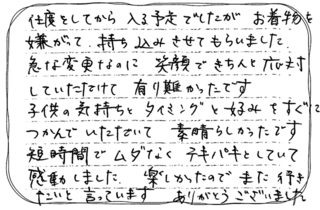 仕度をしてから 入る予定でしたが お着物を
嫌がって 持ち込みさせてもらいました
急な変更なのに 笑顔できちんと応対
していただけて 有り難かったです
子供の気持ちと タイミングと好みをすぐに
つかんでいただいて 素晴らしかったです
短時間でムダなく テキパキとしていて
感動しました 楽しかったので また行き
たいと 言っています ありがとうございました